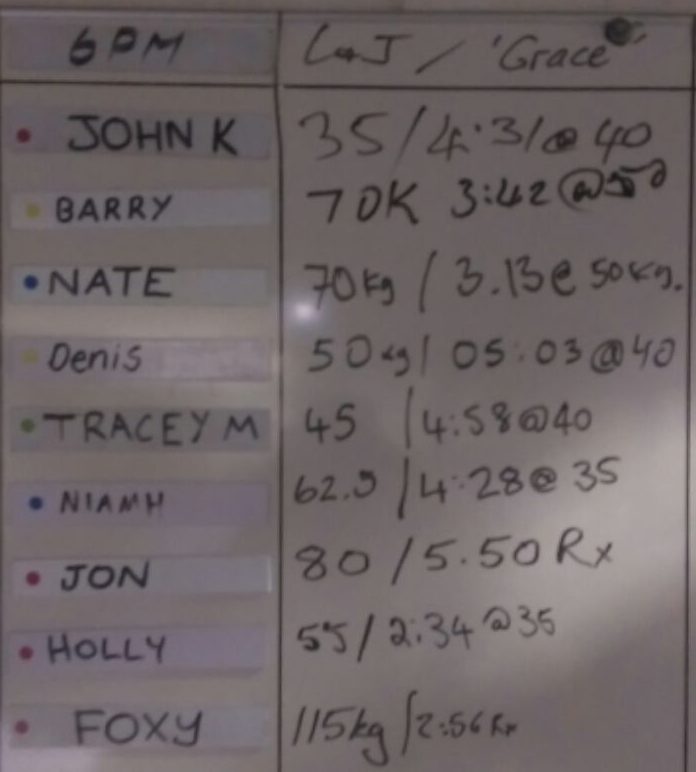 6PM C+J / 'Grace'
JOHN K 35/4:31@40
BARRY 70K 3:42@50
NATE 70kg / 3.13@50kg.
Denis 50kg / 05:03@40
TRACEY M 45 / 4:58@40
NIAMH 62.5 / 4:28@35
JON 80 / 5.50 Rx
HOLLY 55 / 2:34@35
FOXY 115kg / 2:56 Rx